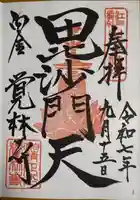 奉拝
令和七年
九月十五日
毘沙門天
白金
覚林寺